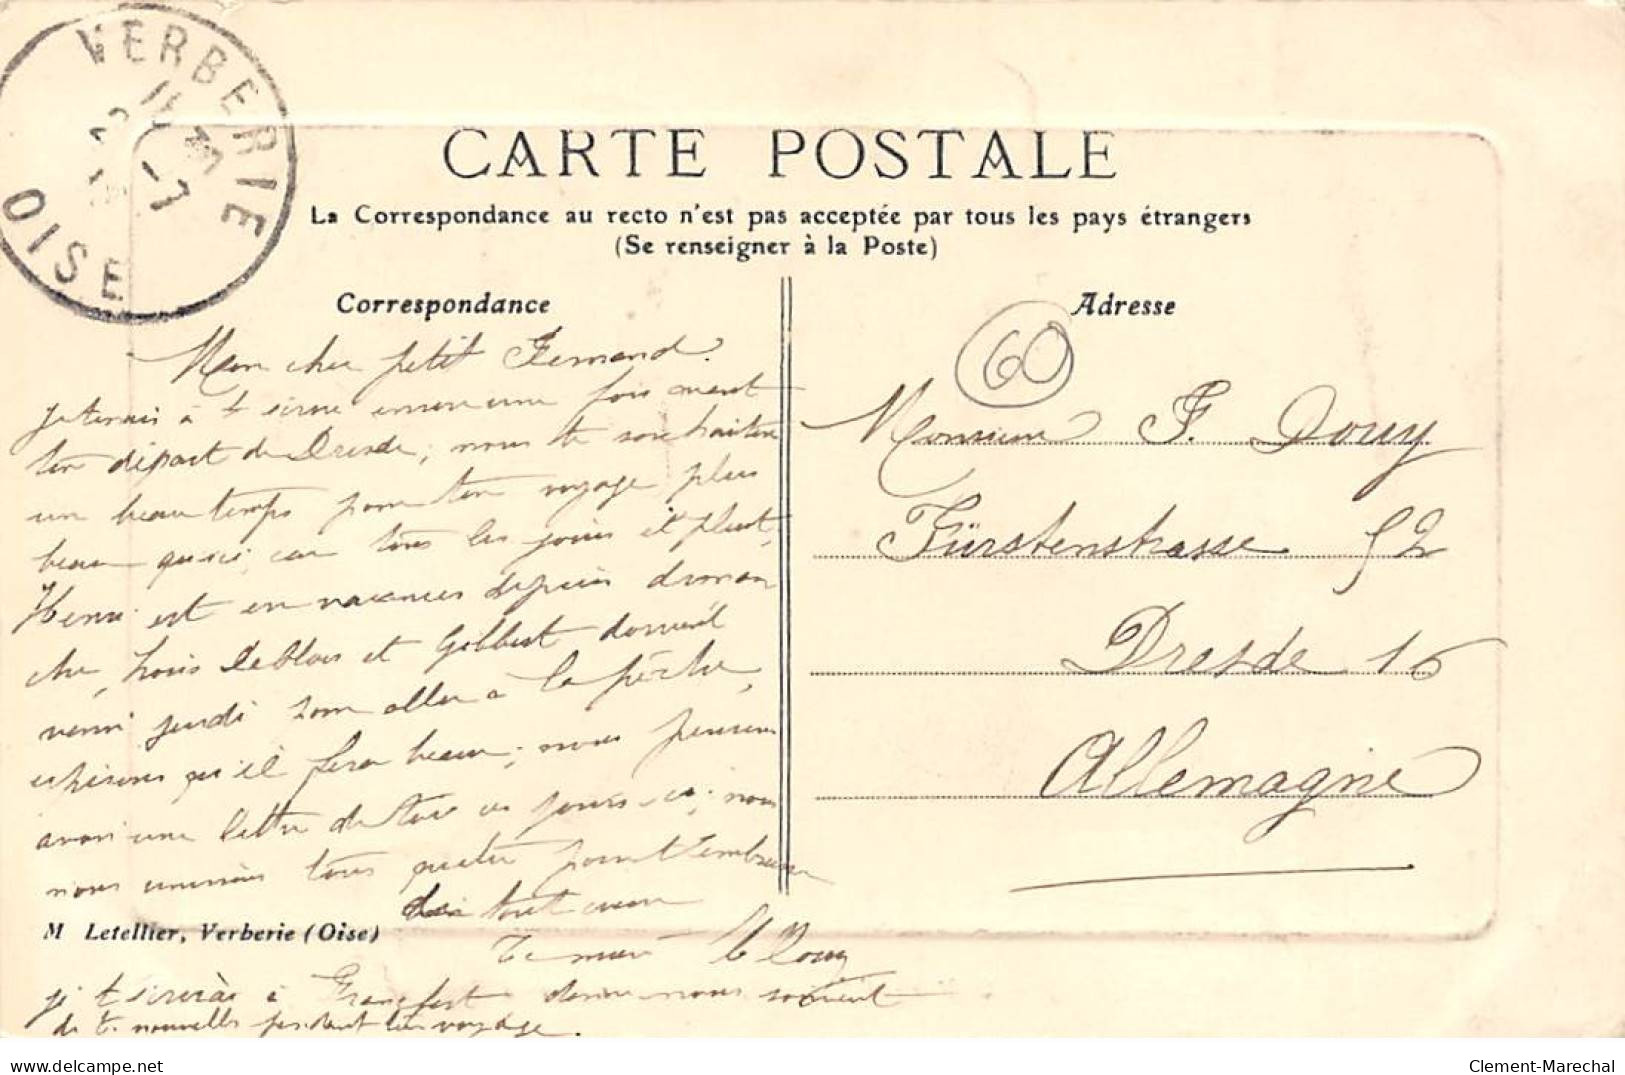 VERBERIE
OISE
CARTE POSTALE
La Correspondance au recto n'est pas acceptée par tous les pays étrangers
(Se renseigner à la Poste)
Correspondance
Adresse
60
Mon cher petit Fernand.
Je tenais à t'écrire encore une fois avant
ton départ de Dresde, nous te souhaitons
un beau temps pour ton voyage plus
beau qu'ici, car tous les jours il pleut,
Henri est en vacances depuis diman
che, Louis Leblois et Gilbert doivent
venir jeudi pour aller à la pêche,
espérons qu'il fera beau, nous pensions
avoir une lettre de toi ces jours-ci, nous
nous unissons tous quatre pour t'embrasser
de tout cœur
Ta mère
je t'écrirai à Francfort donne-nous souvent
de tes nouvelles pendant ton voyage.
Monsieur F. Douy
Fürstenstrasse 52
Dresde 16
Allemagne
M Letellier, Verberie (Oise)
www.delcampe.net
Clement-Marechal